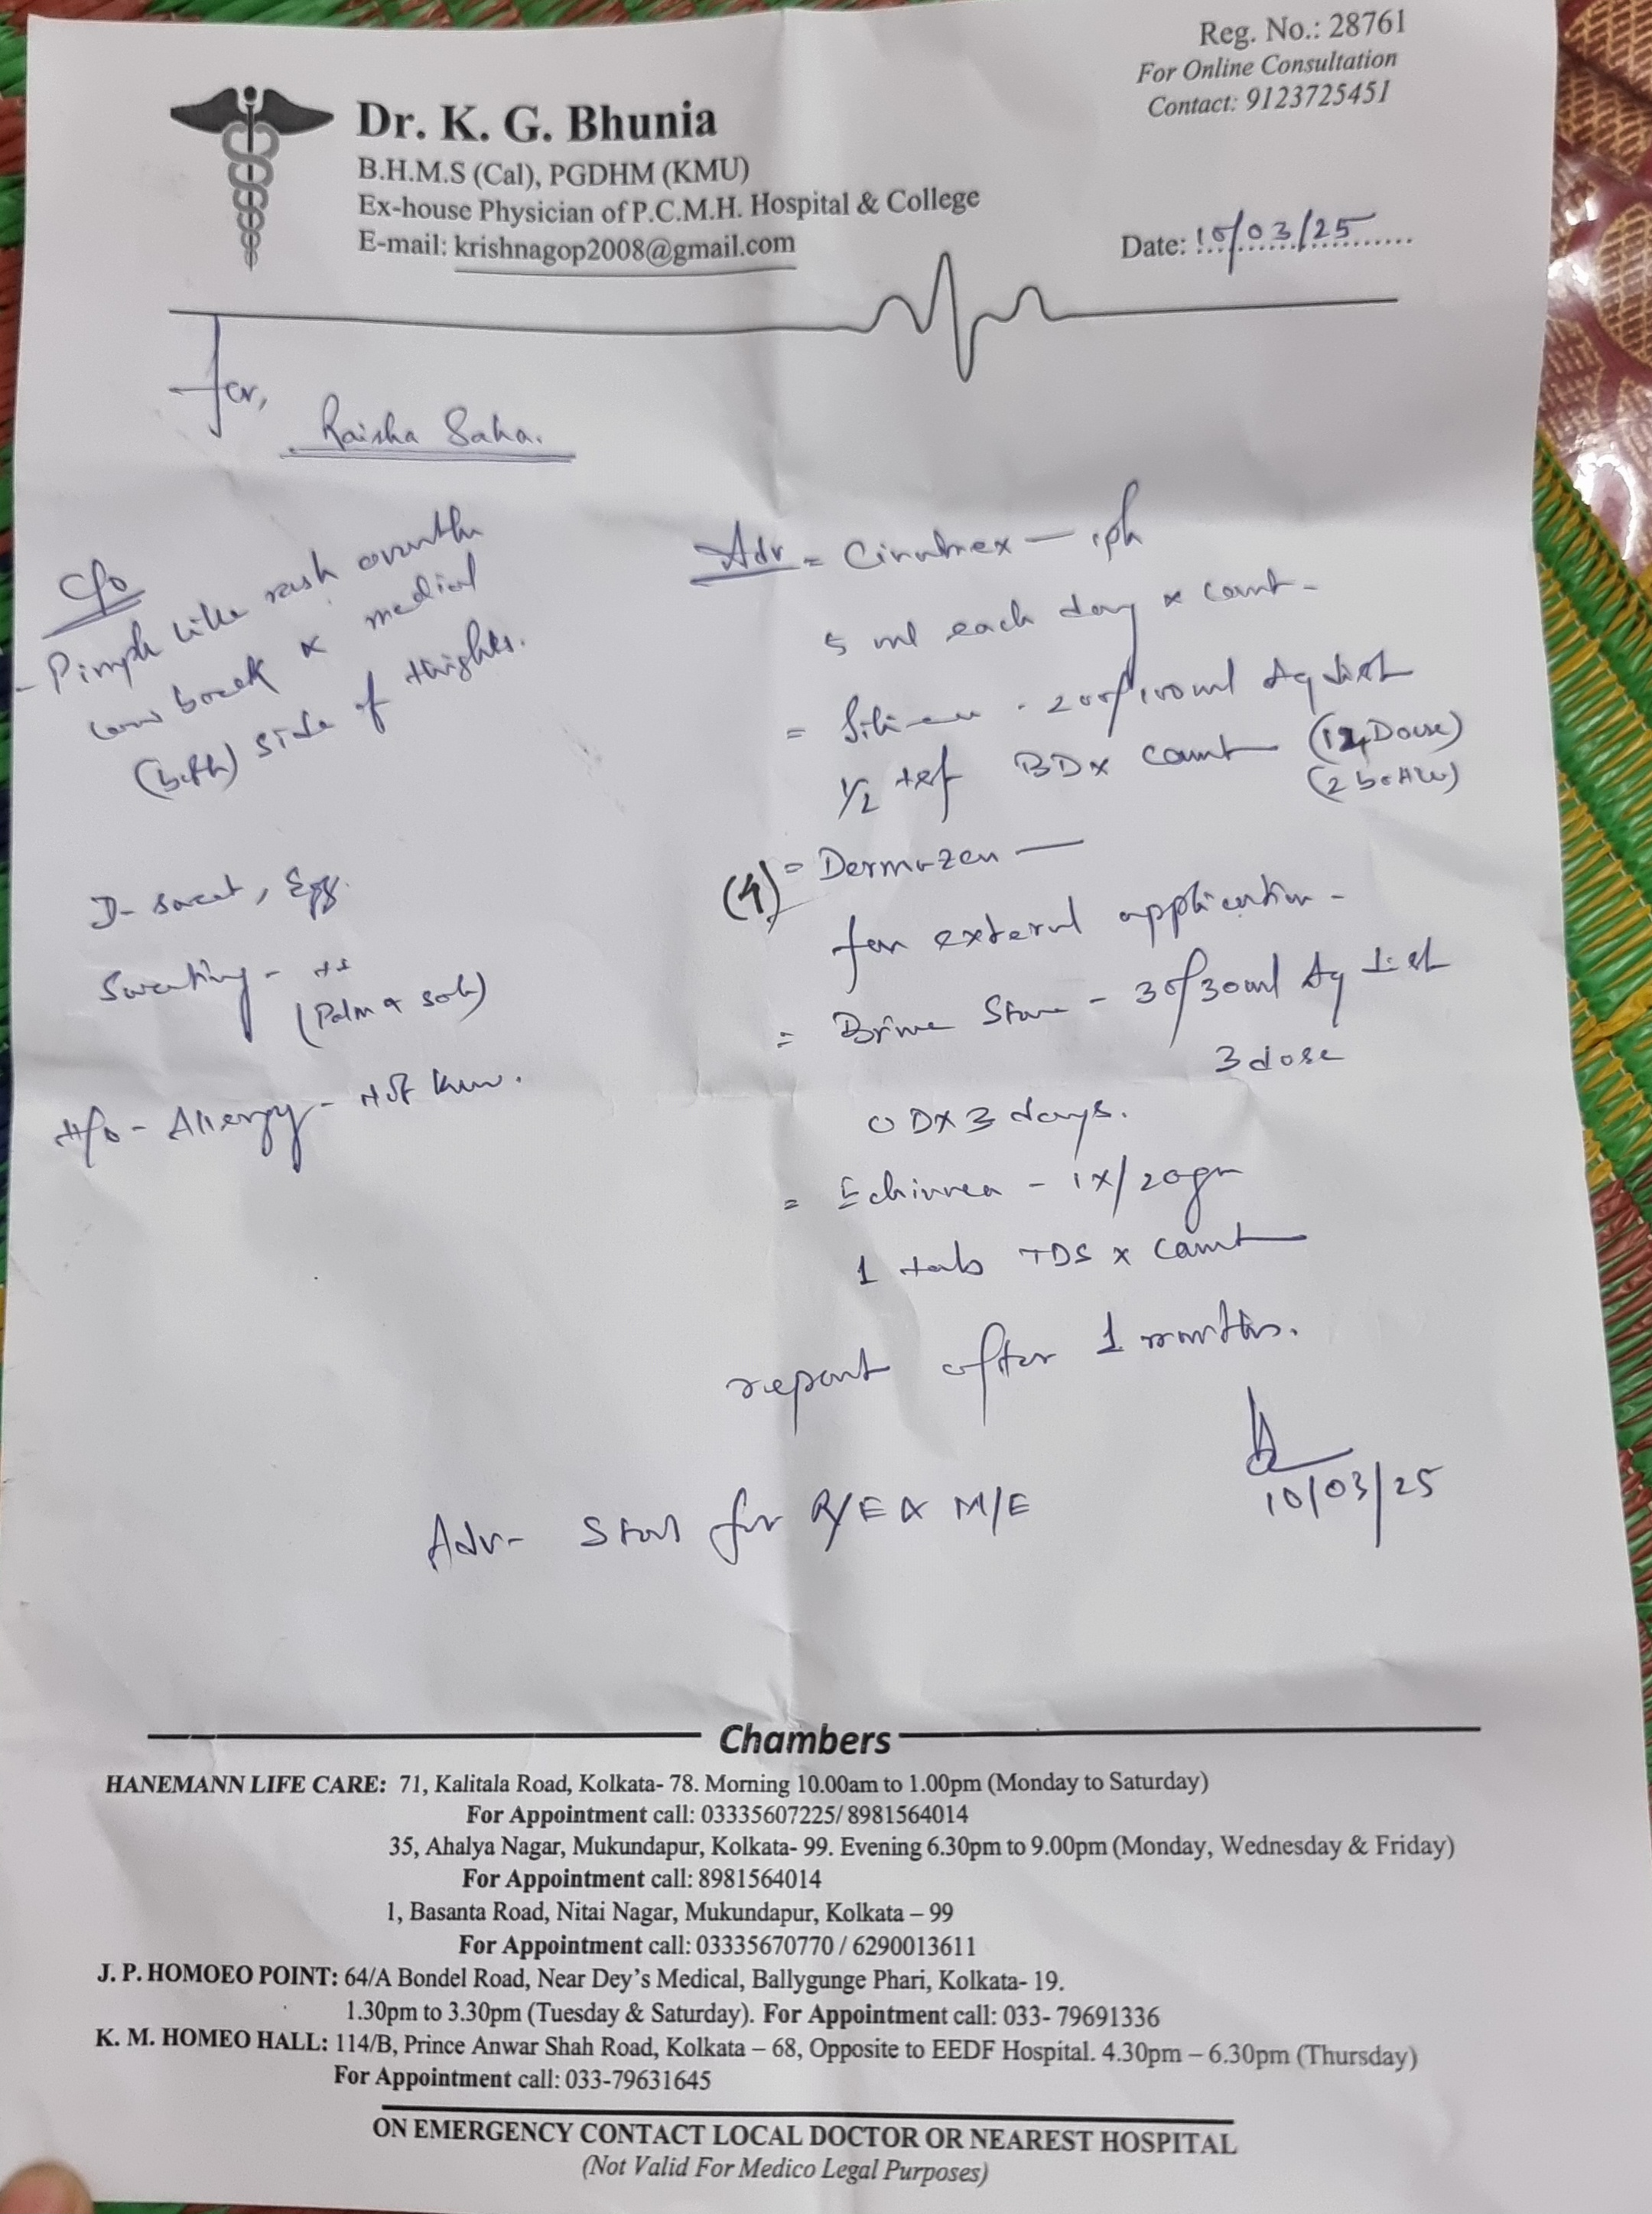 Reg. No.: 28761
For Online Consultation
Contact: 9123725451
Dr. K. G. Bhunia
B.H.M.S (Cal), PGDHM (KMU)
Ex-house Physician of P.C.M.H. Hospital & College
E-mail: krishnagop2008@gmail.com
Date: 10/03/25
For,
Raisha Saha.
C/o
- Pimple like rash
back & medial
(both) side of thighs.
D- sweet, Egg.
Sweating -
(Palm & sole)
H/o - Allergy - not
Adv =
5 ml each day x cont -
= 200/100ml Aq dist
1/2 tsf BD x cont (12 Dose)
(2 bottle)
(4) = Dermazen —
for external application -
= Brime Stone - 30/30ml Aq dist
3 dose
OD x 3 days.
= Echinnea - 1x/20gm
1 tab TDS x cont
report after 1 months.
10/03/25
Adv- Stool for R/E & M/E
Chambers
HANEMANN LIFE CARE: 71, Kalitala Road, Kolkata- 78. Morning 10.00am to 1.00pm (Monday to Saturday)
For Appointment call: 03335607225/ 8981564014
35, Ahalya Nagar, Mukundapur, Kolkata- 99. Evening 6.30pm to 9.00pm (Monday, Wednesday & Friday)
For Appointment call: 8981564014
1, Basanta Road, Nitai Nagar, Mukundapur, Kolkata – 99
For Appointment call: 03335670770 / 6290013611
J. P. HOMOEO POINT: 64/A Bondel Road, Near Dey's Medical, Ballygunge Phari, Kolkata- 19.
1.30pm to 3.30pm (Tuesday & Saturday). For Appointment call: 033- 79691336
K. M. HOMEO HALL: 114/B, Prince Anwar Shah Road, Kolkata – 68, Opposite to EEDF Hospital. 4.30pm – 6.30pm (Thursday)
For Appointment call: 033-79631645
ON EMERGENCY CONTACT LOCAL DOCTOR OR NEAREST HOSPITAL
(Not Valid For Medico Legal Purposes)